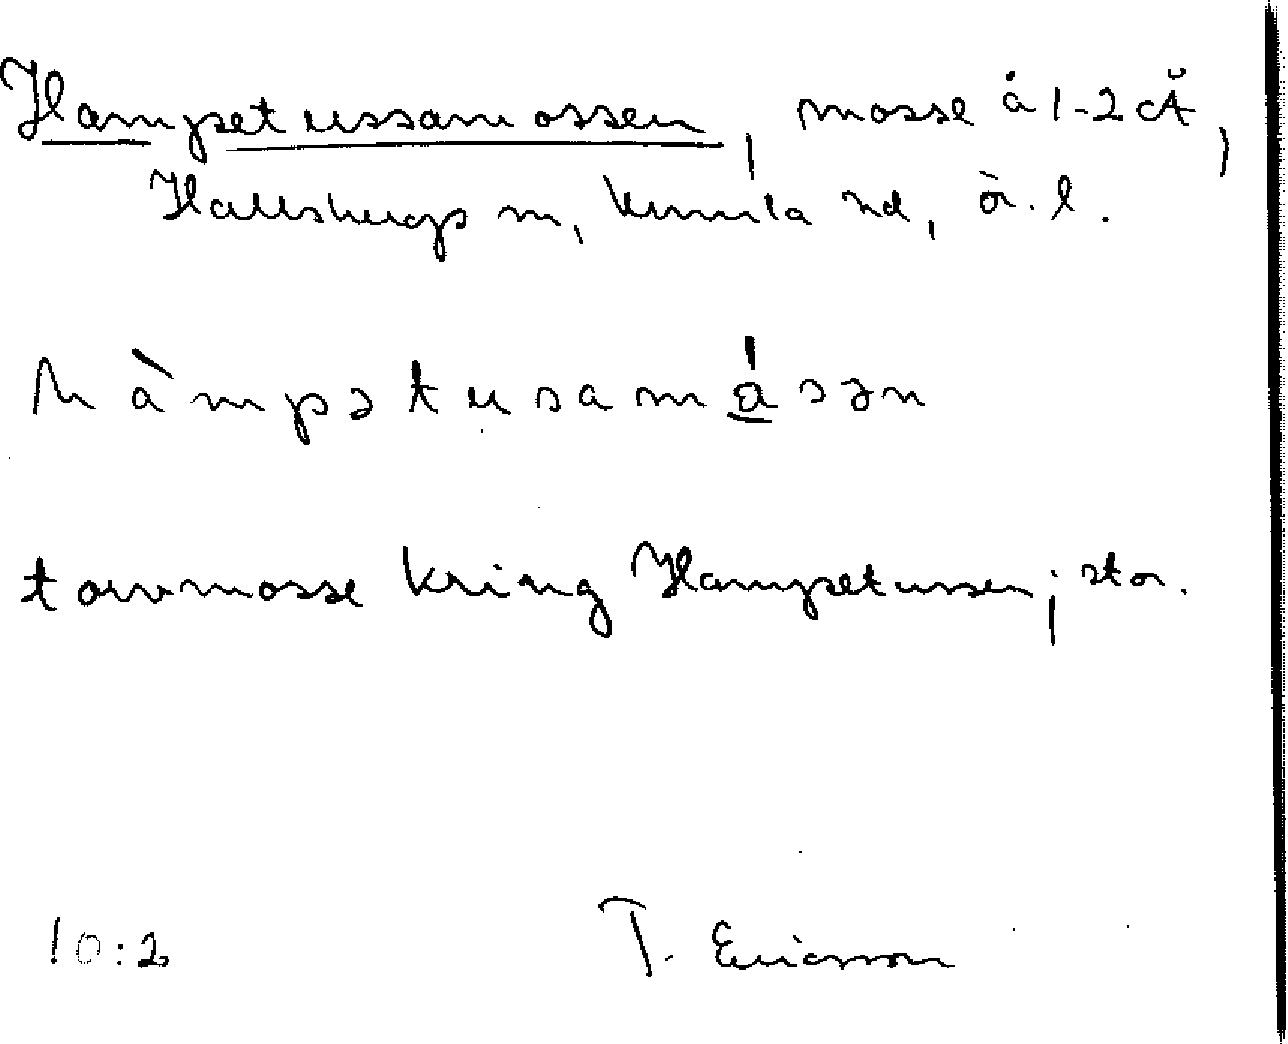 Hampetussamossen, mosse å 1-2 cÄ,
Hallsbergs sn, Kumla hd, ö. l.
hàmpətusamǻsən
torvmosse kring Hampetussen; stor.
10:2 T. Ericsson